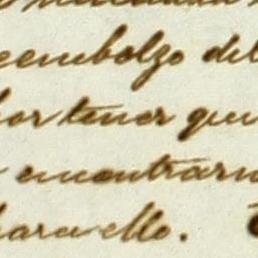 reembolzo del
por tener que
encontrarn
para ello.